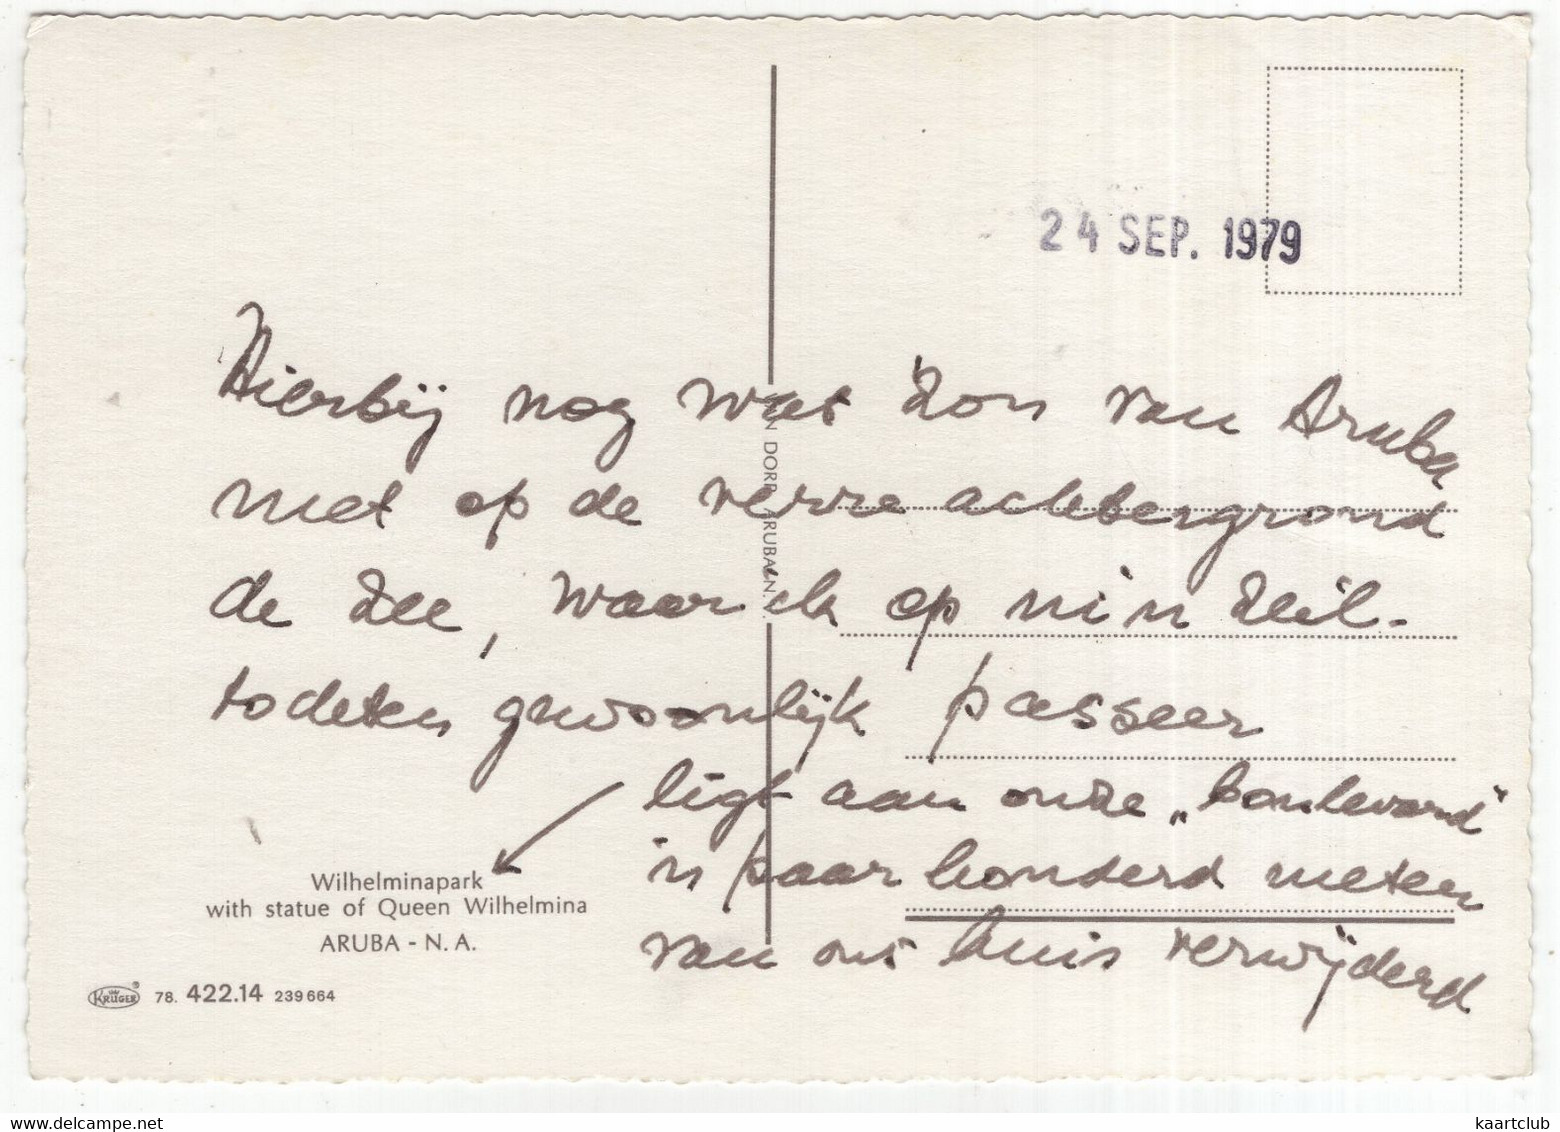 24 SEP. 1979
Hierbij nog wat zon van Aruba
met op de verre achtergrond
de zee, waar ik op mijn zeil-
tochten gewoonlijk passeer
ligt aan onze „boulevard"
'n paar honderd meter
van ons huis verwijderd
Wilhelminapark
with statue of Queen Wilhelmina
ARUBA - N. A.
KRÜGER 78. 422.14 239664
DORP ARUBA N.
kaartclub